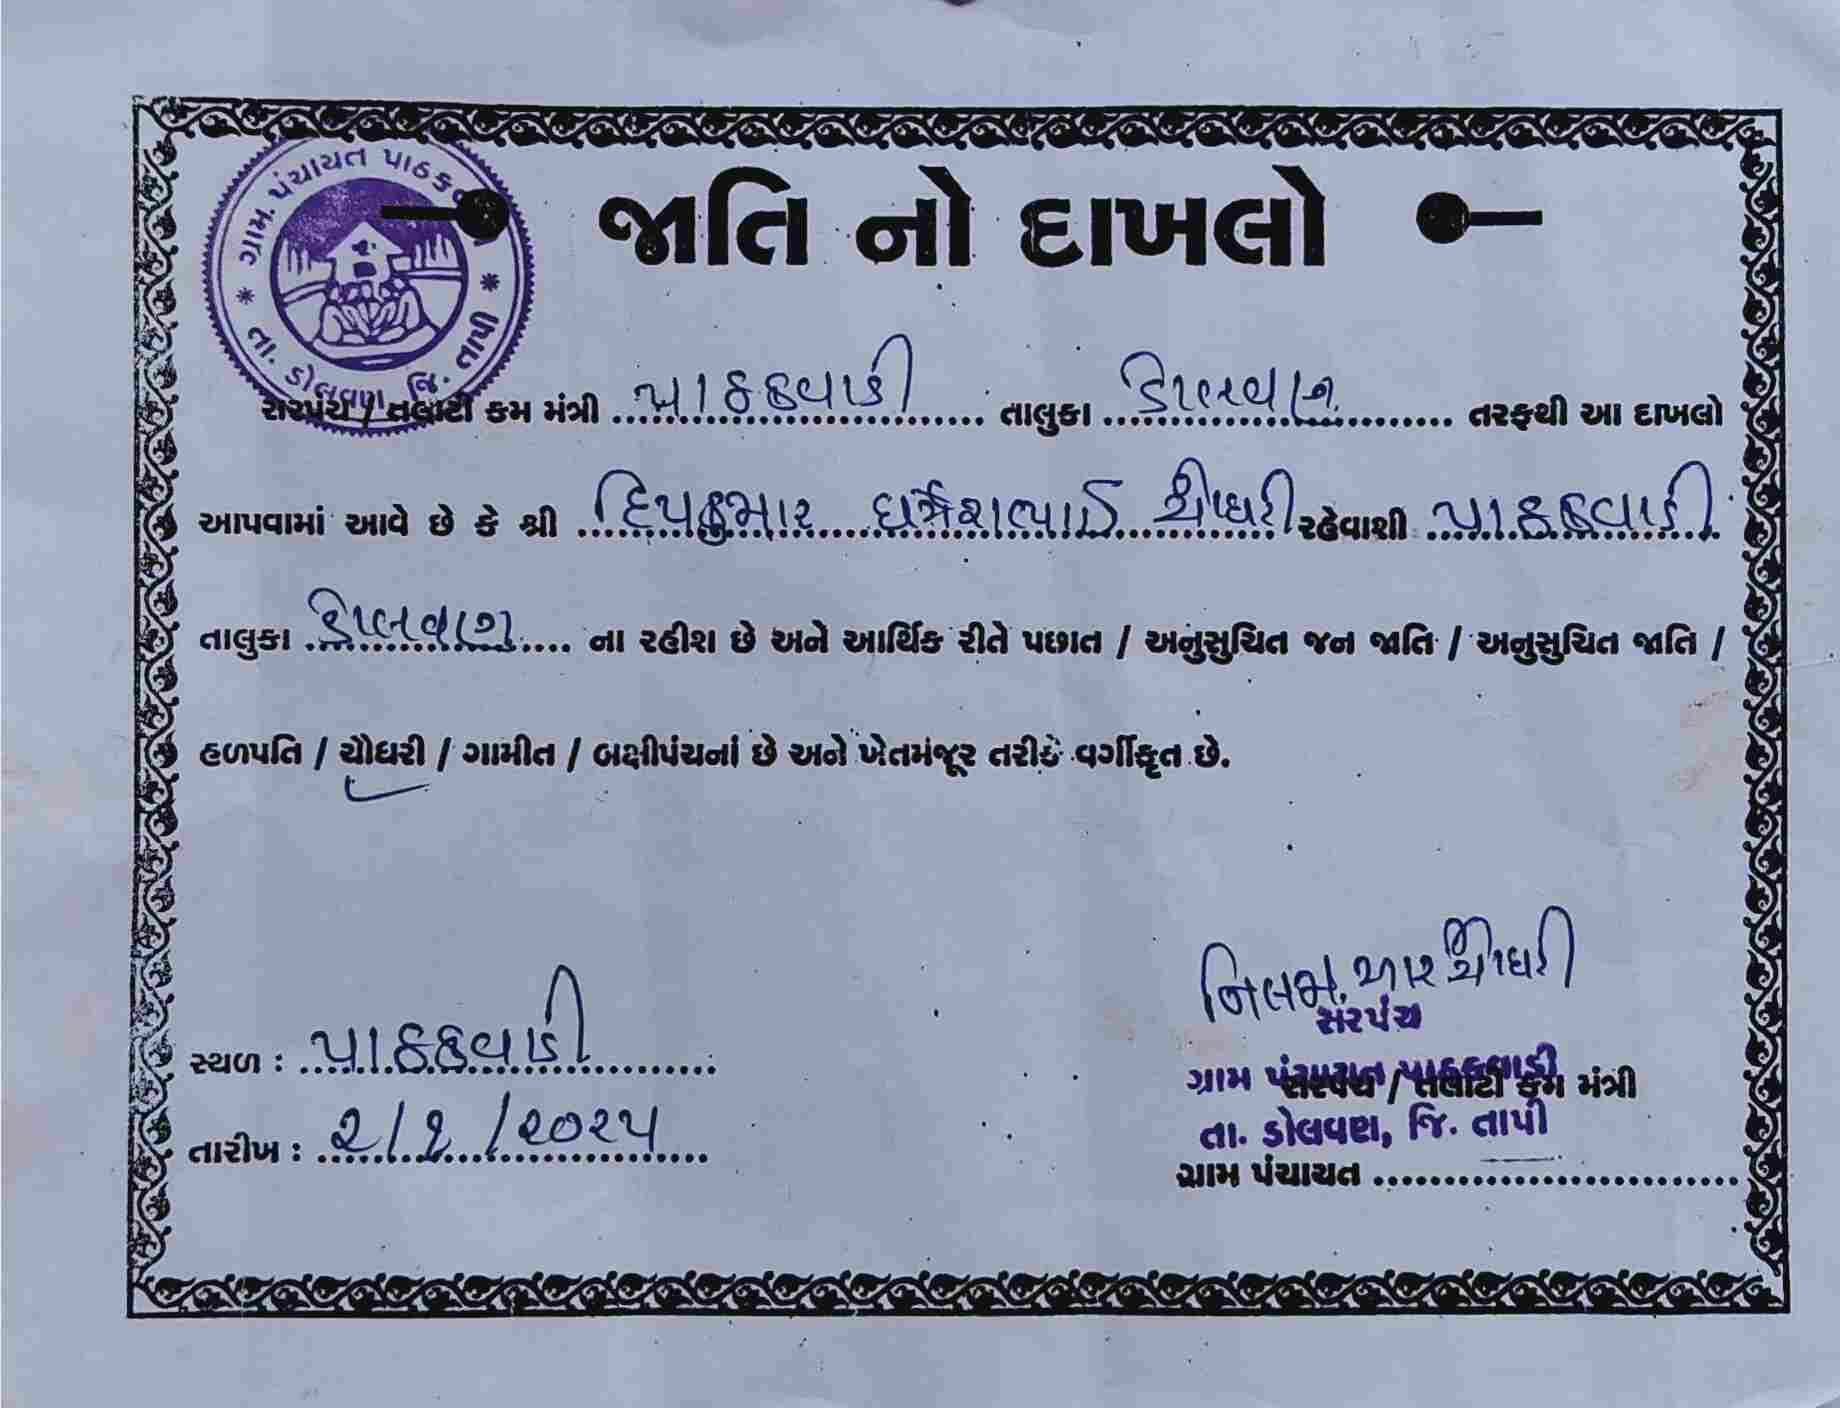 ગ્રામ પંચાયત પાઠકવાડી
* તા. ડોલવણ, જિ. તાપી *
જાતિ નો દાખલો
સરપંચ / તલાટી કમ મંત્રી પાઠકવાડી તાલુકા ડોલવણ તરફથી આ દાખલો
આપવામાં આવે છે કે શ્રી દિપકુમાર ધર્મેશભાઈ ચૌધરી રહેવાશી પાઠકવાડી
તાલુકા ડોલવણ ના રહીશ છે અને આર્થિક રીતે પછાત / અનુસુચિત જન જાતિ / અનુસુચિત જાતિ /
હળપતિ / ચૌધરી / ગામીત / બક્ષીપંચનાં છે અને ખેતમંજૂર તરીકે વર્ગીકૃત છે.
નિલમ. આર ચૌધરી
સરપંચ
ગ્રામ પંચાયત પાઠકવાડી
તા. ડોલવણ, જિ. તાપી
સરપંચ / તલાટી કમ મંત્રી
ગ્રામ પંચાયત
સ્થળ : પાઠકવાડી
તારીખ : ૨/૧/૨૦૨૫